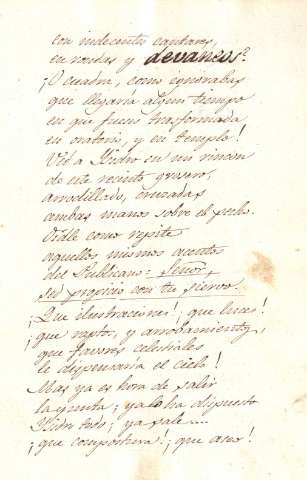 con indecentes cantares,
en rondas y devaneos?
¡O cuadra, como ignorabas
que llegaría algun tiempo
en que fueses trasformada
en oratorio, y en templo!
Ved a Ysidro en un rincon
de este recinto grosero,
arrodillado, cruzadas
ambas manos sobre el pecho.
Vedle como repite
aquellos mismos acentos
del Publicano: Señor,
sed propicio con tu siervo.
¡Que ilustraciones! ¡que luces!
¡que raptos, y arrobamientos,
que favores celestiales
le dispensaria el cielo!
Mas ya es hora de salir
la yunta; ya la ha dispuesto
Ysidro todo; ya sale....
¡que compostura! ¡que aseo!